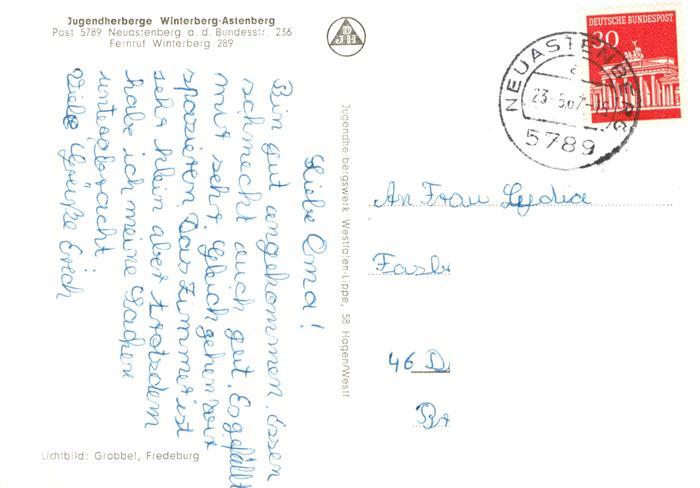 Jugendherberge Winterberg-Astenberg
Post 5789 Neuastenberg a. d. Bundesstr. 236
Fernruf Winterberg 289
DEUTSCHE BUNDESPOST
30
NEUASTENBERG
a
23-5.67-15
5789
Liebe Oma!
Bin gut angekommen. Essen
schmeckt auch gut. Es gefällt
mir sehr. Gleich gehen wir
spazieren. Das Zimmer ist
sehr klein aber trotzdem
habe ich meine Sachen
untergebracht
Viele Grüße Erich
Jugendherbergswerk Westfalen-Lippe, 58 Hagen/Westf
An Frau Lydia
46 D
Lichtbild: Grobbel, Fredeburg